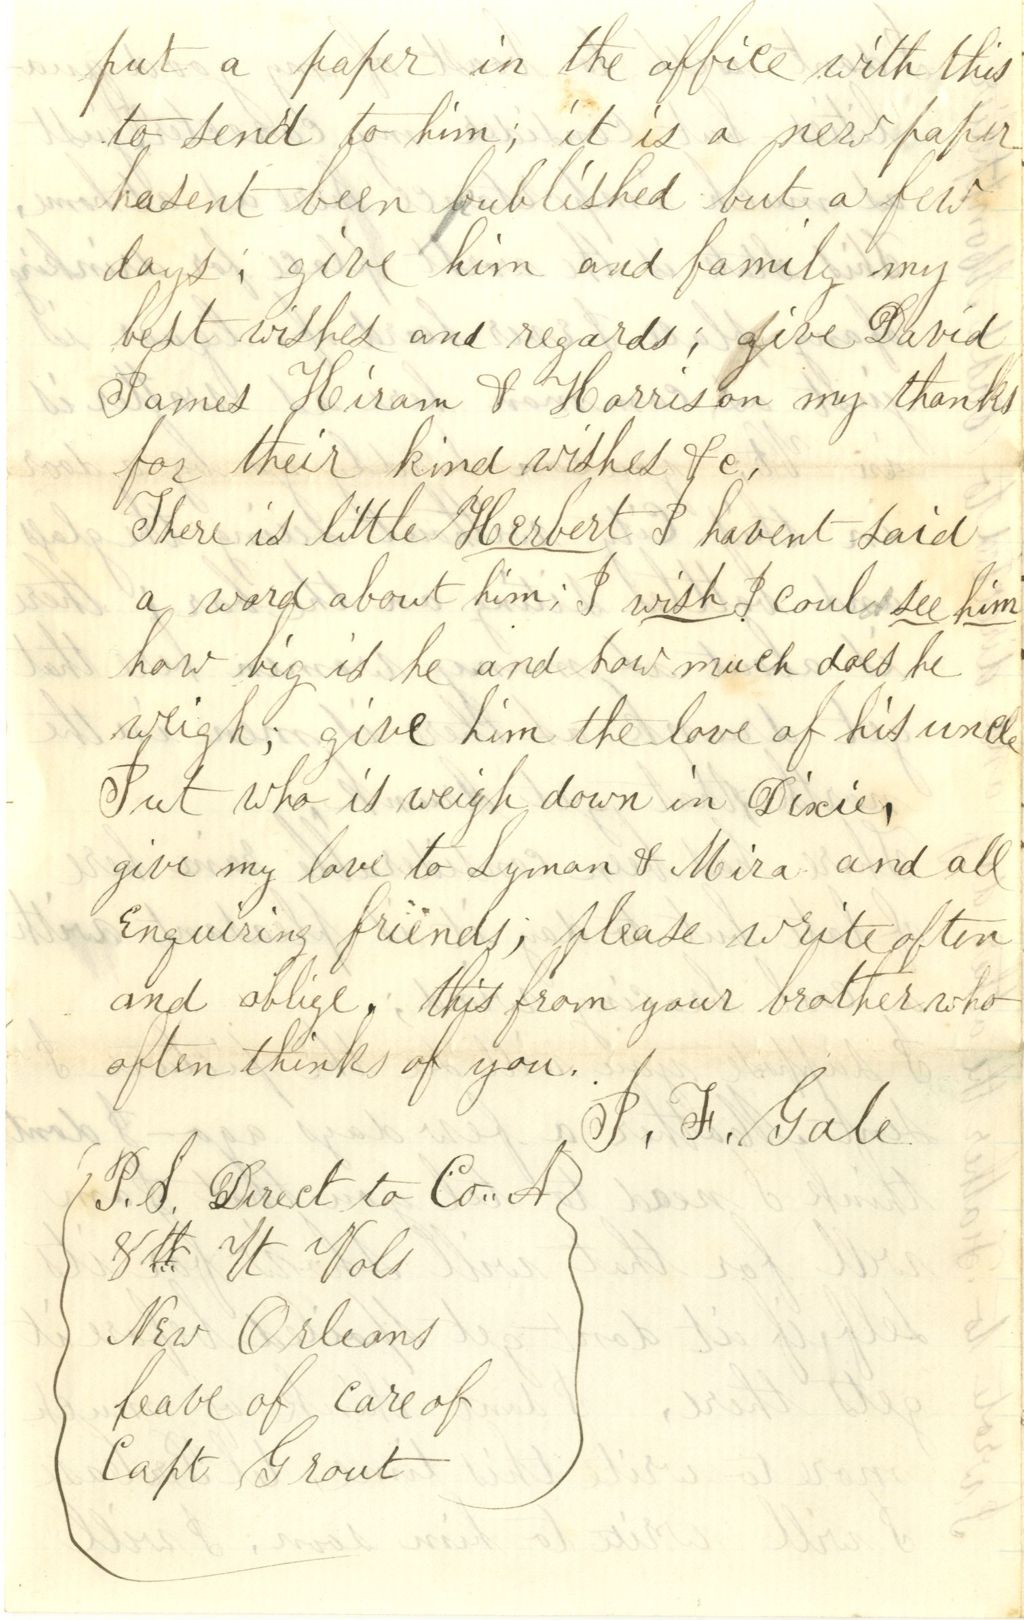 put a paper in the office with this
to send to him; it is a new paper
hasent been published but a few
days; give him and family my
best wishes and regards; give David
James Hiram & Harrison my thanks
for their kind wishes &c,
There is little Herbert I havent said
a word about him; I wish I coul see him
how big is he and how much does he
weigh; give him the love of his uncle
Put who is weigh down in Dixie,
give my love to Lyman & Mira and all
Enquiring friends; please write often
and oblige, this from your brother who
often thinks of you.
P. F. Gale
P.S. Direct to Co.. A
8th Vt Vols
New Orleans
leave of care of
Capt Grout